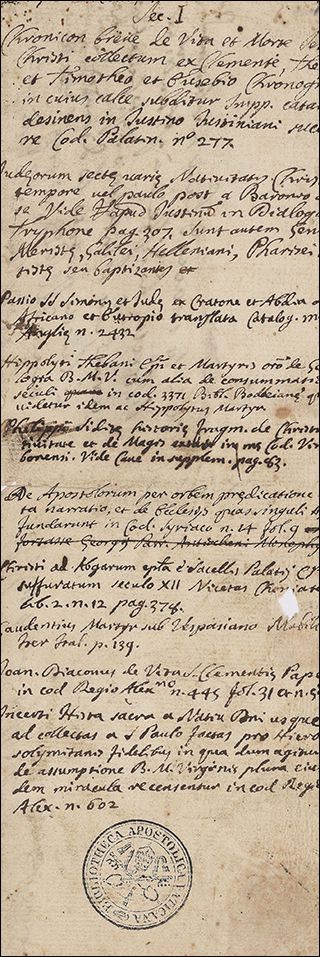 Sec. I
Chronicon breve de Vita et Morte Je
Christi collectum ex Clemente, The
et Timotheo et Eusebio Chronogr
in cuius calce subditur Impp. Cata
desinens in Justino Justiniani succe
re Cod. Palatin. nº 277
Judeorum sectę varię Nativitatis Chris
tempore vel paulo post a Baronio
se Vide apud Justinū in Dialog
Tryphone pag. 307. sunt autem Gen
Meristę, Galilei, Helleniani, Pharisei
tistę seu baptizantes et
Passio SS Simonis et Judę ex Cratone et Abdia
Africano et Eutropio translata Catalog. m
Anglię n. 2432
Hippolyti Thebani Epi et Martyris
B. M. V. cum alia de consummati
sęculi in cod. 3371 Bibl. Bodleianę
videtur idem ac Hippolytus Martyr
Philippi Sidetę historię fragm. de Christi
tivitate et de Magis ex ms Cod. Vin
bonensi. Vide Cave in supplem. pag. 83.
De Apostolorum per orbem predicatione
ta narratio, et de Ecclesijs quas singuli
fundarunt in Cod. Syriaco n. 14 fol. 9
fortasse Georgij Patr. Antiocheni
Christi ad Abgarum epla è Sacello Palatij
suffuratum seculo XII Nicetas Choniate
lib. 2. n. 12 pag. 378.
Gaudentius Martyr sub Vespasiano Mabill
Iter Ital. p. 139.
Joan. Diaconus de Vita S. Clementis Papę
in cod Regio Alex.no n. 445 fol. 31 et n. 5
Incerti Hista sacra a Nativ Dni usque
ad collectas a S Paulo factas pro Hiero
solymitanis fidelibus in qua dum agitur
de assumptione B. M. Virginis plura eius
dem miracula recensentur in cod Regi
Alex. n. 602
BIBLIOTHECA APOSTOLICA VATICANA